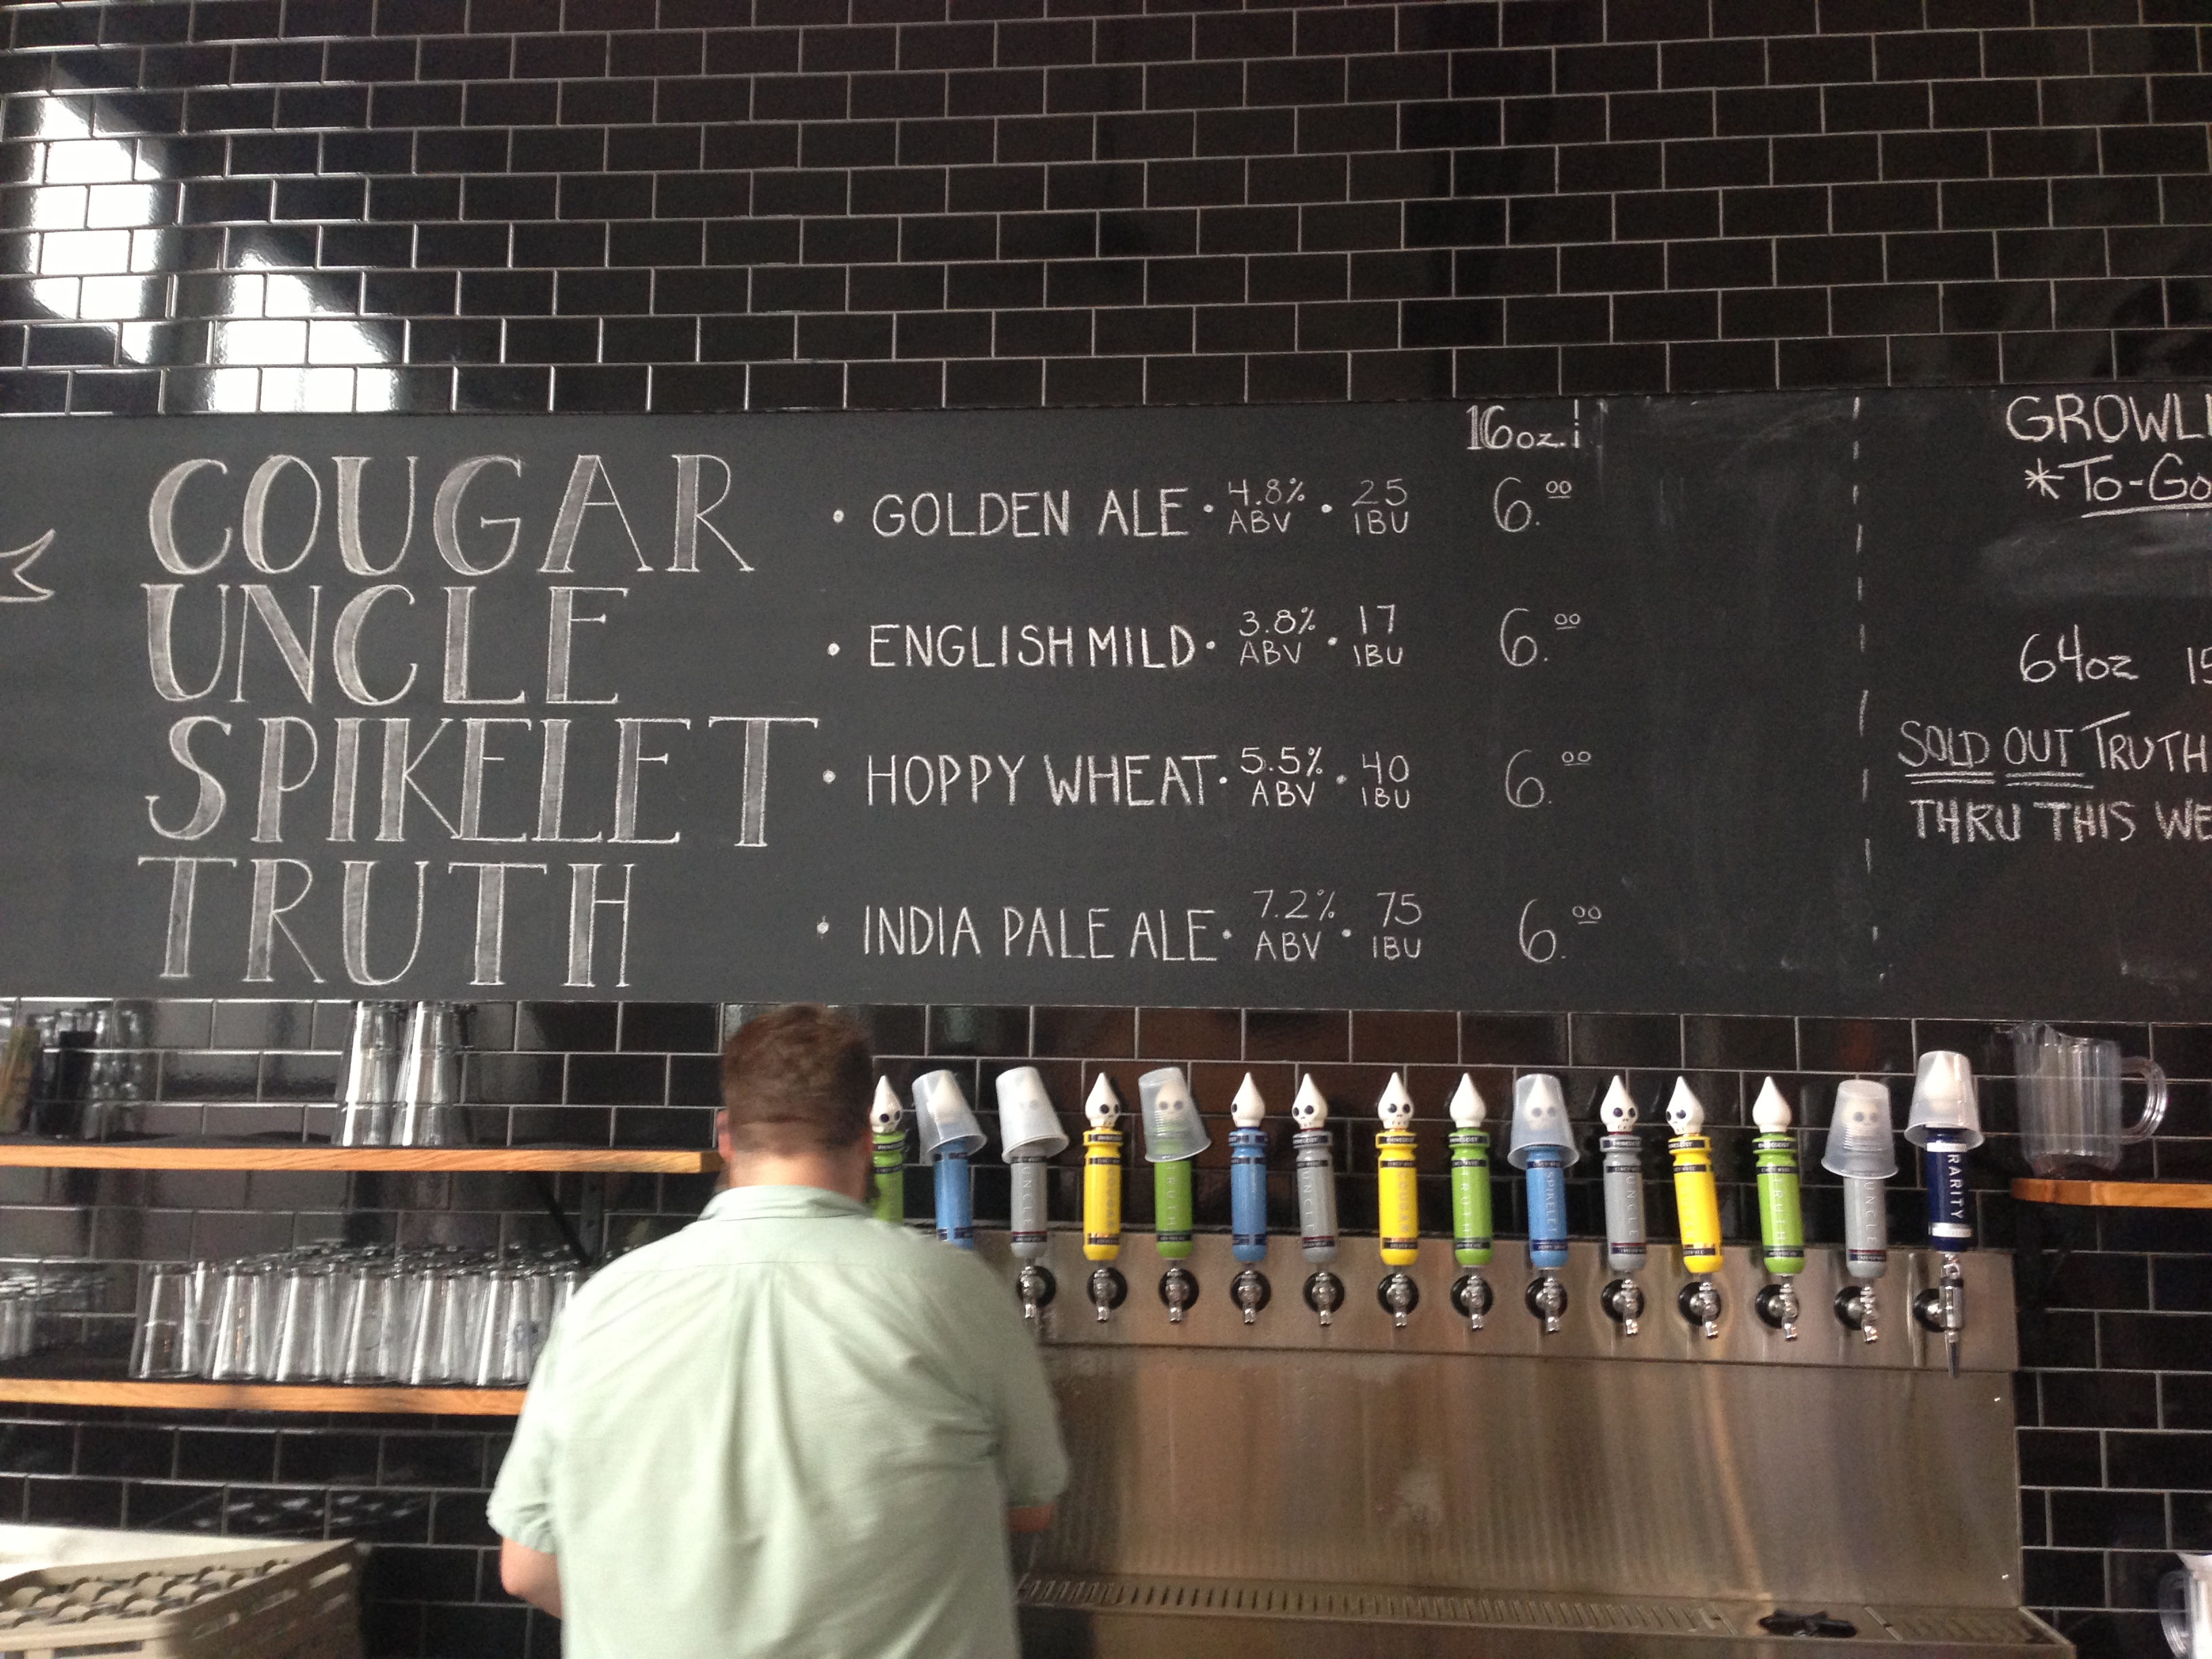 16oz.
COUGAR • GOLDEN ALE • 4.8% ABV • 25 IBU 6.00
UNCLE • ENGLISH MILD • 3.8% ABV • 17 IBU 6.00
SPIKELET • HOPPY WHEAT • 5.5% ABV • 40 IBU 6.00
TRUTH • INDIA PALE ALE • 7.2% ABV • 75 IBU 6.00
GROWL
*To-Go
64oz 15
SOLD OUT TRUTH
THRU THIS WE
UNCLE
COUGAR
TRUTH
UNCLE
COUGAR
TRUTH
SPIKELET
UNCLE
TRUTH
UNCLE
RARITY